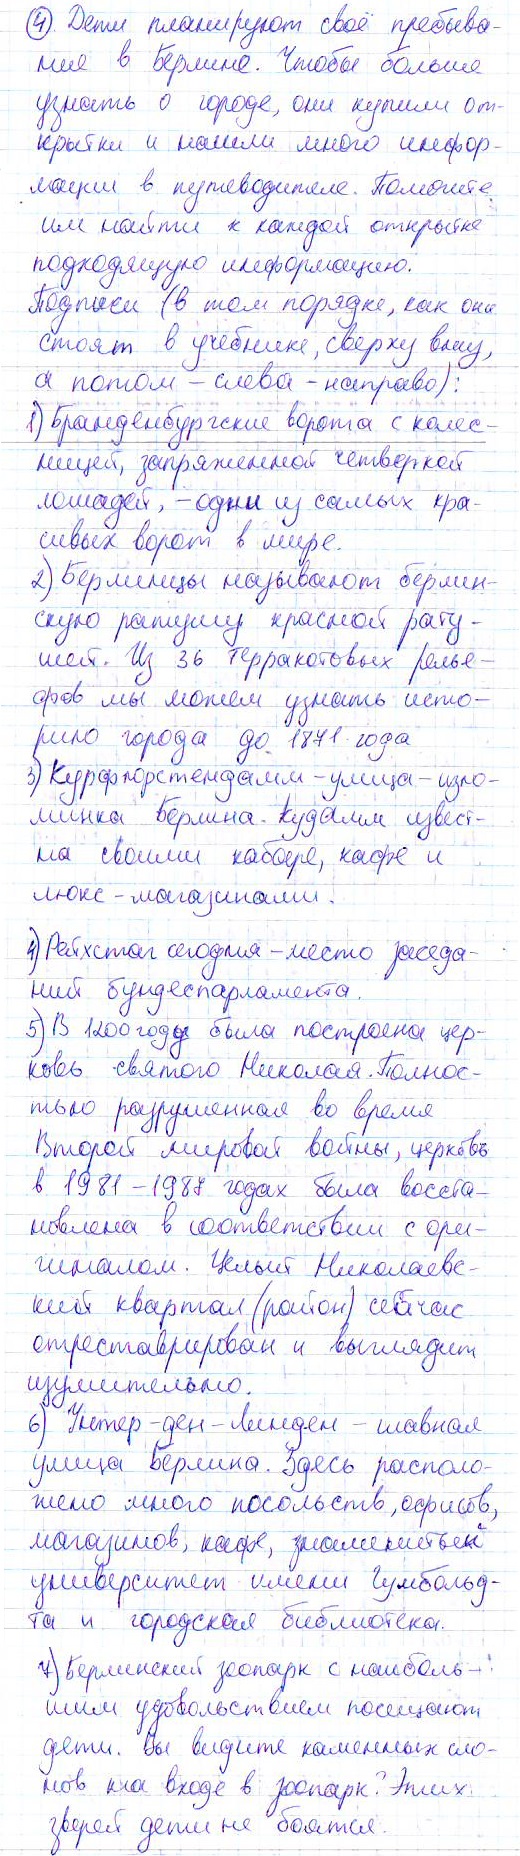 ④ Дети планируют своё пребыва-
ние в Берлине. Чтобы больше
узнать о городе, они купили от-
крытки и нашли много инфор-
мации в путеводителе. Помогите
им найти к каждой открытке
подходящую информацию.
Подписи (в том порядке, как они
стоят в учебнике, сверху вниз,
а потом – слева – направо):
1) Бранденбургские ворота с колес-
ницей, запряженной четверкой
лошадей, – одни из самых кра-
сивых ворот в мире.
2) Берлинцы называют берлин-
скую ратушу красной рату-
шей. Из 36 терракотовых релье-
фов мы можем узнать исто-
рию города до 1871 года
3) Курфюрстендамм – улица – изю-
минка Берлина. Кудамм извест-
на своими кабаре, кафе и
люкс – магазинами.
4) Рейхстаг сегодня – место заседа-
ний бундеспарламента.
5) В 1200 году была построена цер-
ковь святого Николая. Полнос-
тью разрушенная во время
Второй мировой войны, церковь
в 1981 – 1987 годах была восста-
новлена в соответствии с ори-
гиналом. Целый Николаевс-
кий квартал (район) сейчас
отреставрирован и выглядит
изумительно.
6) Унтер-ден-Линден – главная
улица Берлина. Здесь располо-
жено много посольств, офисов,
магазинов, кафе, знаменитый
университет имени Гумбольд-
та и городская библиотека.
7) Берлинский зоопарк с наиболь-
шим удовольствием посещают
дети. Вы видите каменных сло-
нов на входе в зоопарк? Этих
зверей дети не боятся.